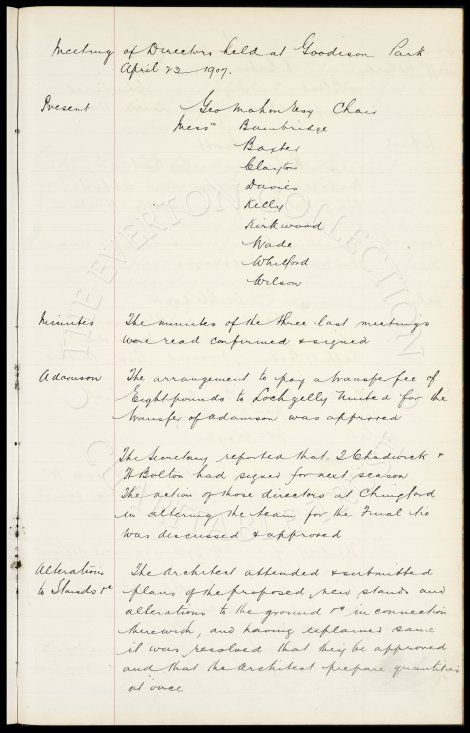 Meeting of Directors held at Goodison Park
April 23 1907.
Present Geo Mahon Esq Chair
Messrs Bainbridge
Baxter
Clayton
Davies
Kelly
Kirkwood
Wade
Whitford
Wilson
Minutes The minutes of the three last meetings
were read confirmed & signed
Adamson The arrangement to pay a transfer fee of
Eight pounds to Lochgelly United for the
transfer of Adamson was approved
The Secretary reported that Chadwick &
H Bolton had signed for next season
The action of those directors at Chingford
in altering the team for the Final tie
was discussed & approved
Alterations The Architect attended & submitted
to Stands &c plans of the proposed new stands and
alterations to the ground &c in connection
therewith, and having explained same
it was resolved that they be approved
and that the Architect prepare quantities
at once
THE EVERTON COLLECTION
CHARITABLE TRUST